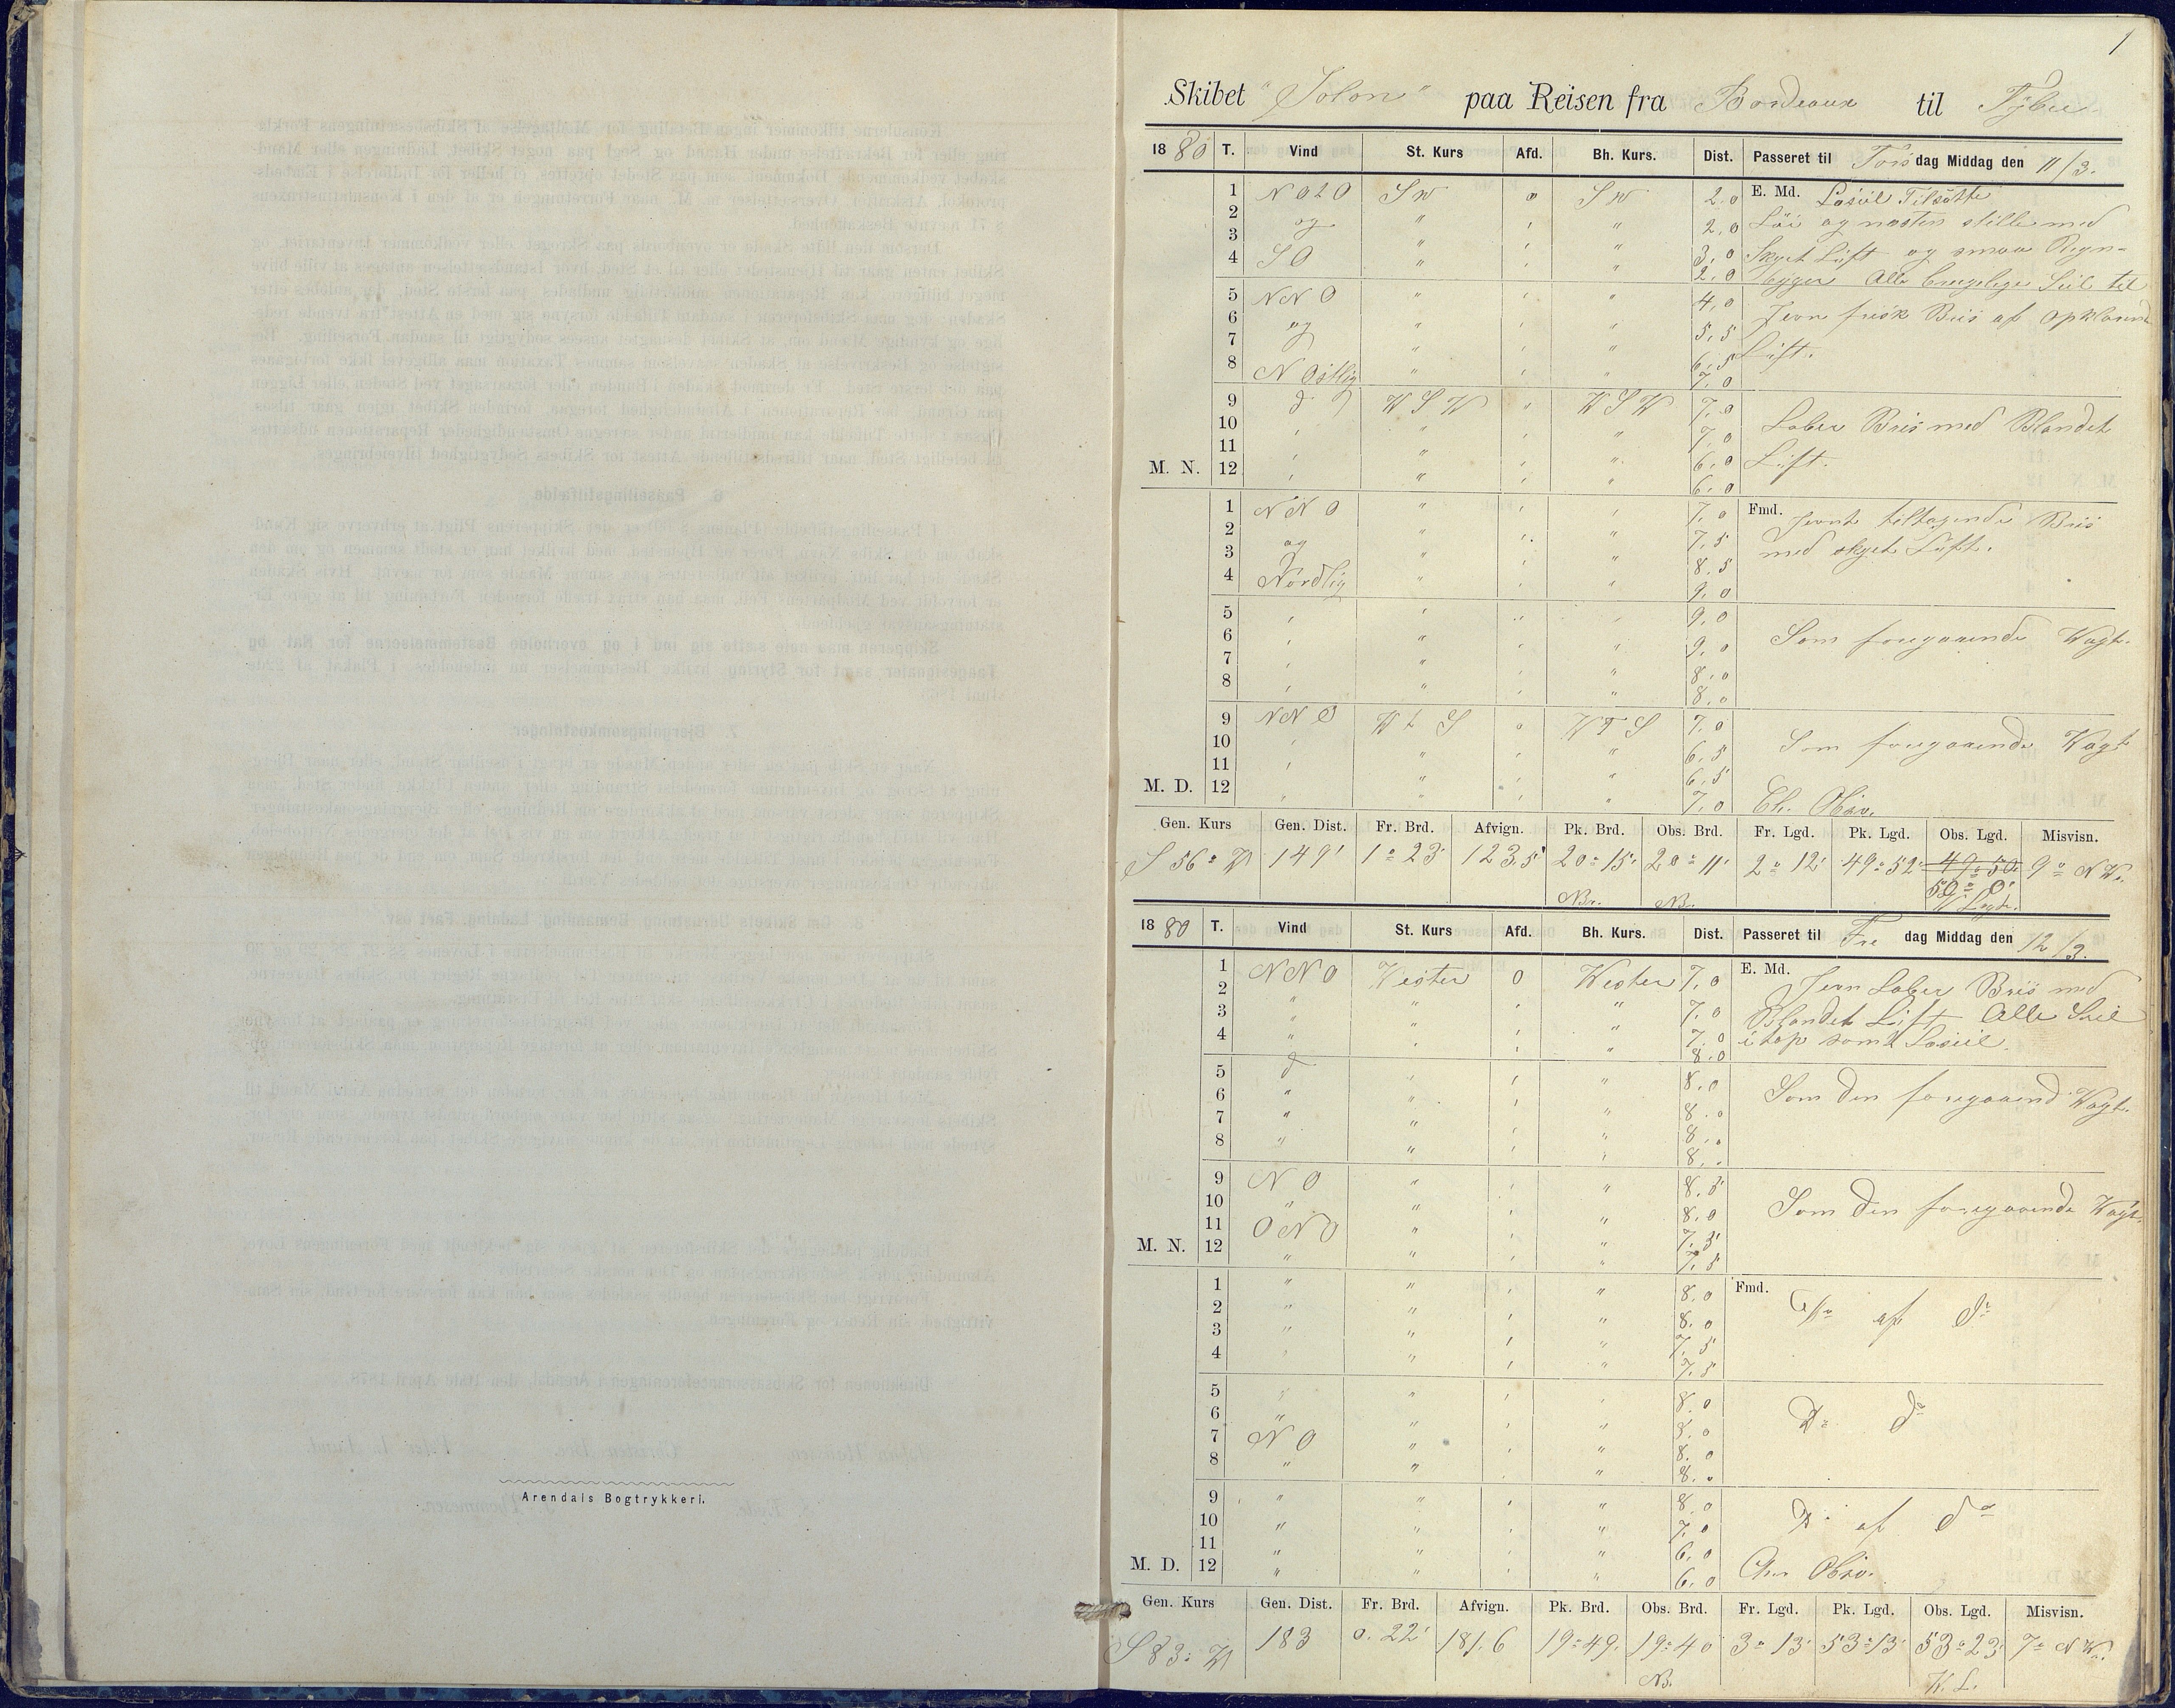 1
Skibet "Solon" paa Reisen fra Bordeaux til Tybee
1880 T. Vind St. Kurs Afd. Bh. Kurs. Dist. Passeret til Tors dag Middag den 11/3.
1 N O t O SW 0 SW 2,0 E. Md. Læseil Tilsatte
2 og " " 2,0 Löi og næsten stille med
3 " " 3,0 Skyet Luft og smaa Regn-
4 S O " " 2,0 bygger Alle brugelige Seil til
5 N N O " " 4,0 Jevn frisk Bris af opklarende
6 og " " 5,5 Luft.
7 " " 6,5
8 N Ostlig " " 7,0
9 do W S W " W S W 7,0
10 " " 7,0 Laber Bris med Blandet
11 " " 6,0 Luft.
M. N. 12 " " 6,0
1 N N O " " 7,0 Fmd. Jevnt tiltagende Bris
2 og " " 7,5 med skyet Luft.
3 " " 8,5
4 Nordlig " " 9,0
5 " " 9,0
6 " " 9,0 Som foregaaende Vagt.
7 " " 8,0
8 " " 8,0
9 N N O W t S " W t S 7,0
10 " " 6,5 Som foregaaende Vagt
11 " " 6,5
M. D. 12 " " 7,0 Ch. Obsv.
Gen. Kurs Gen. Dist. Fr. Brd. Afvign. Pk. Brd. Obs. Brd. Fr. Lgd. Pk. Lgd. Obs. Lgd. Misvisn.
S 56° W 149' 1° 23' 123,5' 20° 15' 20° 11' 2° 12' 49° 52' 49° 50' 9° N W.
50° 0'
NBr. NBr. W Lgd.
1880 T. Vind St. Kurs Afd. Bh. Kurs. Dist. Passeret til Fre dag Middag den 12/3.
1 N N O Vester 0 Vester 7,0 E. Md. Jevn Laber Bris med
2 " " " 7,0 Blandet Luft Alle Seil
3 " " " 7,0 i top samt Læseil.
4 " " " 8,0
5 do " " 8,0
6 " " " 8,0 Som den foregaaend Vagt.
7 " " " 8,0
8 " " " 8,0
9 N O " " 8,5
10 " " " 8,0 Som den foregaaende Vagt.
11 O N O " " 7,5
M. N. 12 " " " 7,5
1 " " " 8,0 Fmd.
2 " " " 8,0 Do af do
3 " " " 7,5
4 " " " 7,5
5 " " " 8,0
6 " " " 8,0 Do do
7 N O " " 8,0
8 " " " 8,0
9 " " " 8,0
10 " " " 7,0 Do af do
11 " " " 6,0
M. D. 12 " " " 6,0 Chr. Obsv.
Gen. Kurs Gen. Dist. Fr. Brd. Afvign. Pk. Brd. Obs. Brd. Fr. Lgd. Pk. Lgd. Obs. Lgd. Misvisn.
S 83° W 183 0. 22' 181.6 19° 49' 19° 40' 3° 13' 53° 13' 53° 23' 7° N W.
NB. W. L.
Arendals Bogtrykkeri.